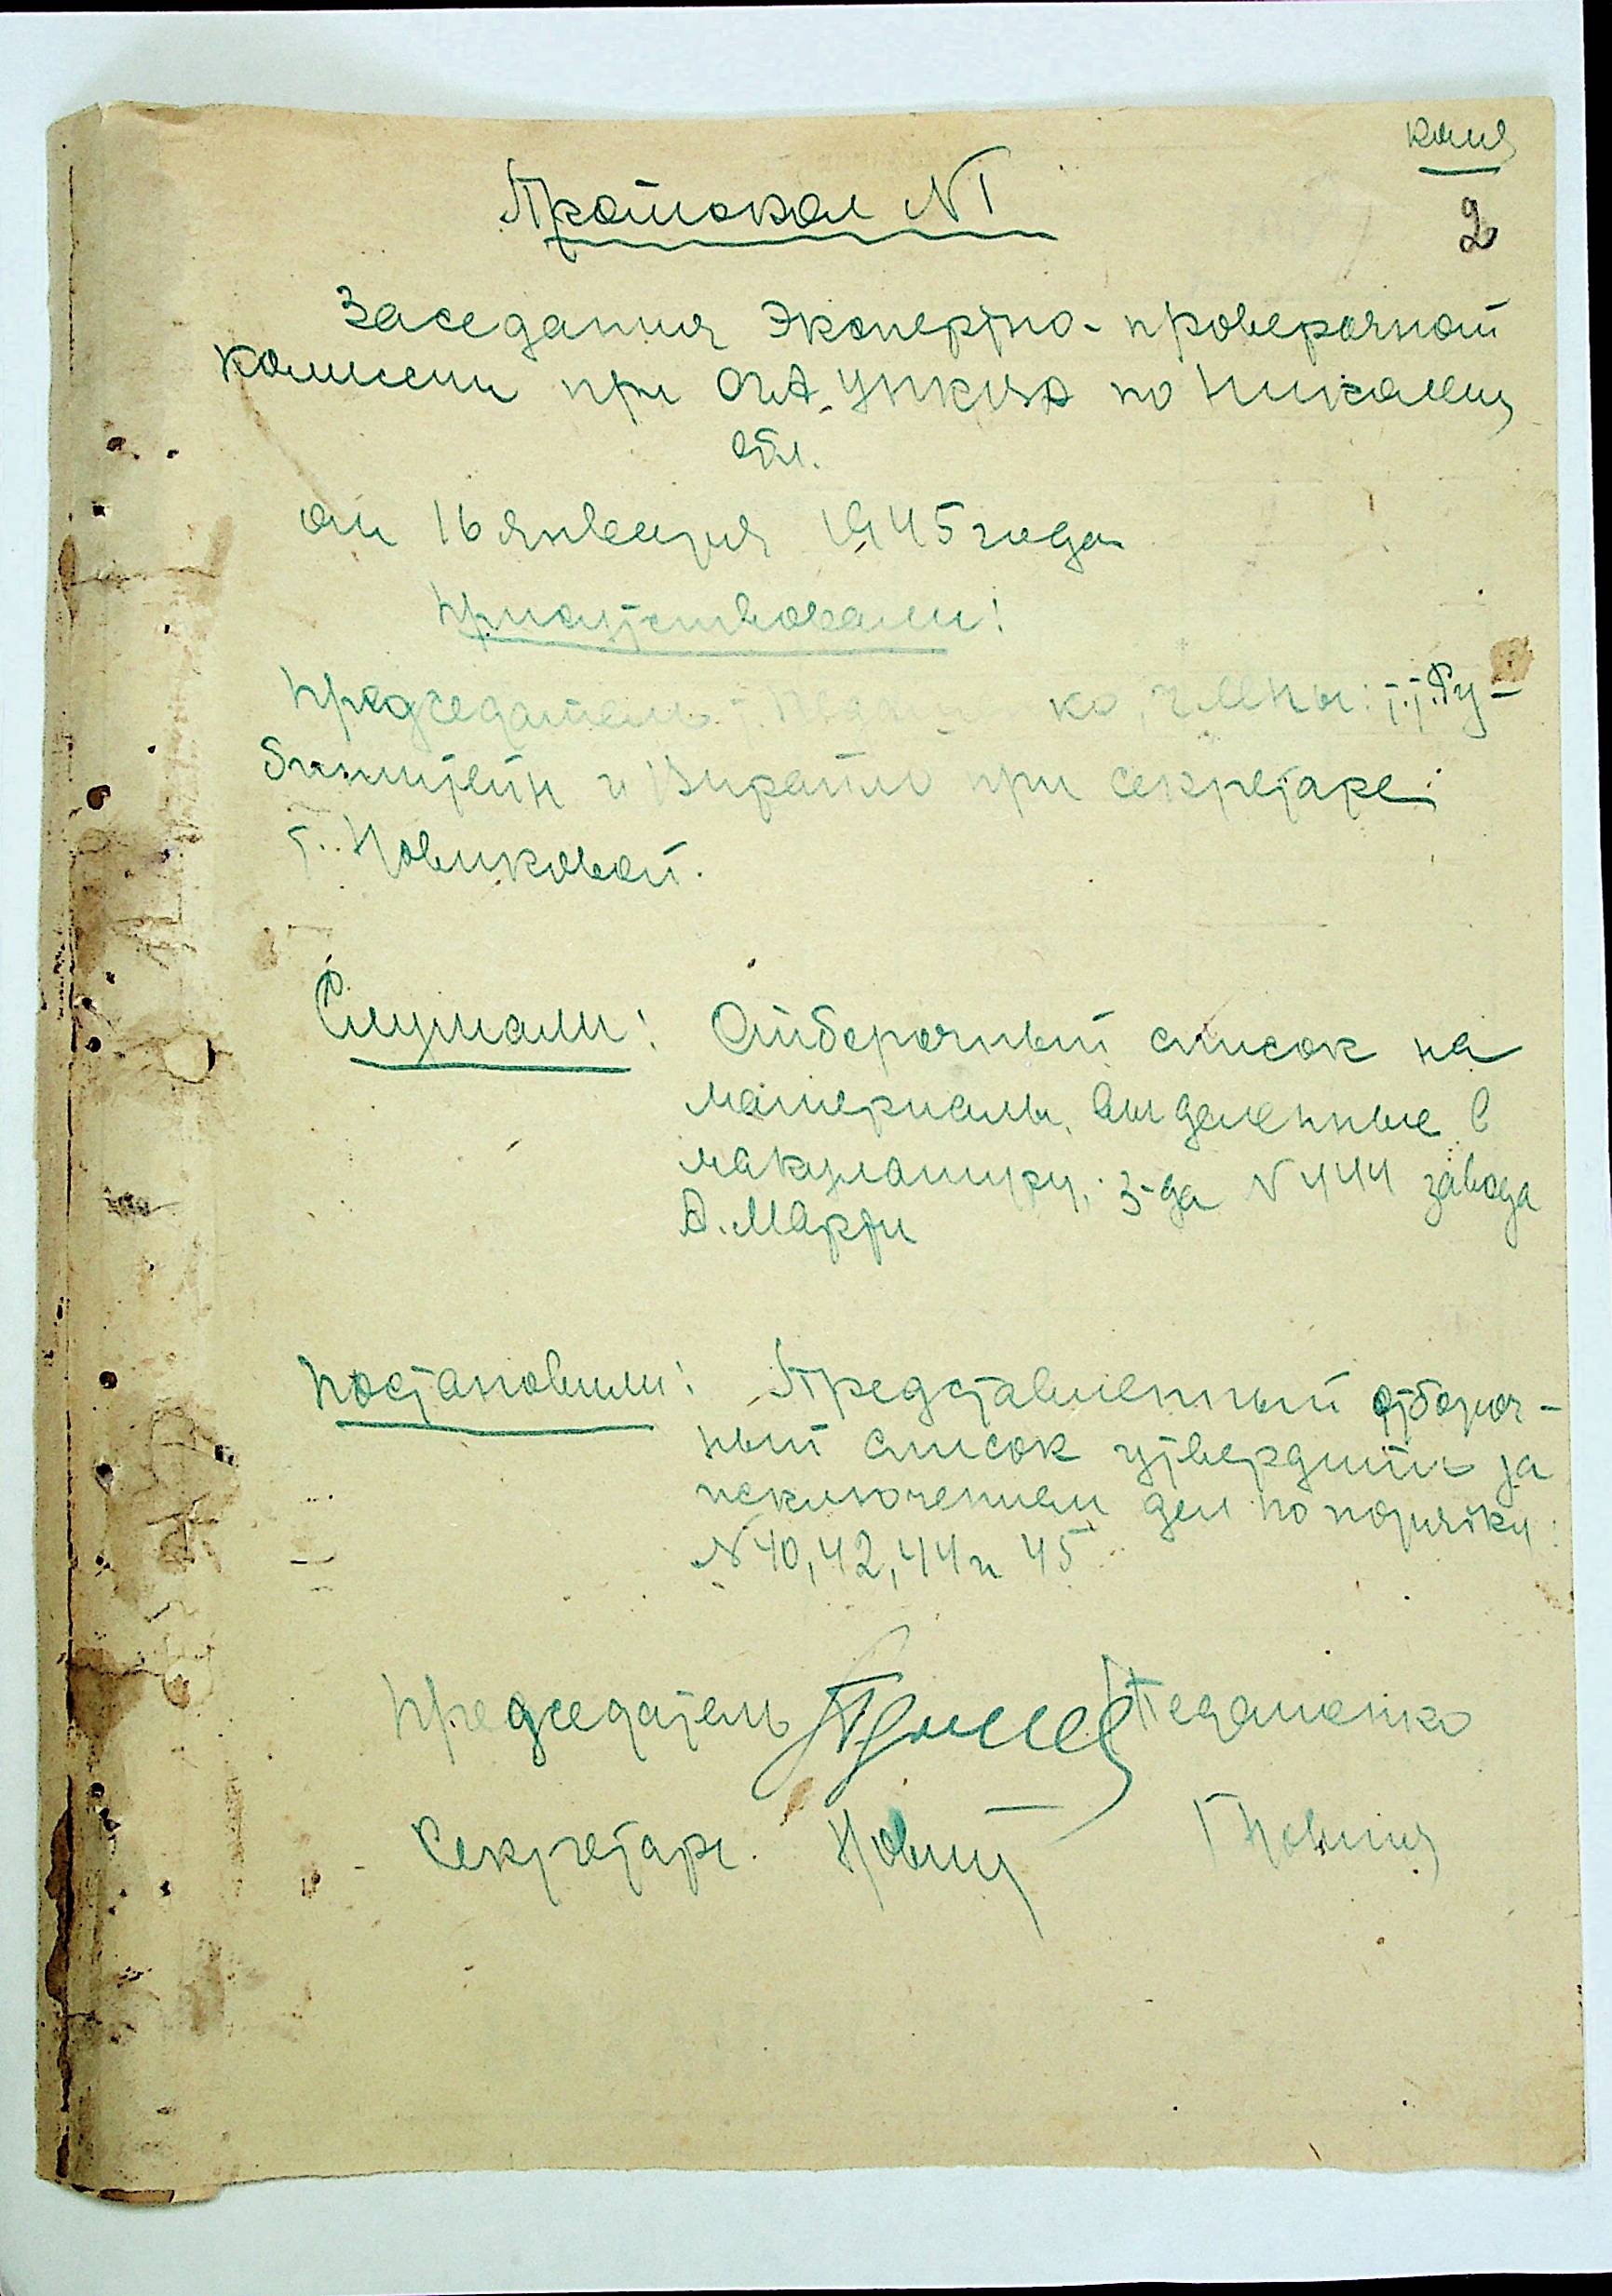 копия
2
Протокол N1
Заседания Экспертно-проверочной
комиссии при ОГА УНКВД по Николаевск
обл.
от 16 января 1945 года
Присутствовали:
Председатель т. ко, члены: т.т. Ру-
бинштейн и при секретаре
т. Новиковой.
Слушали: Отборочный список на
материалы, выделенные в
макулатуру, з-да N 444 завода
А. Марти
Постановили: Представленный отбороч-
ный список утвердить за
исключением дел по порядку
N 40, 42, 44 и 45
Председатель
Секретарь